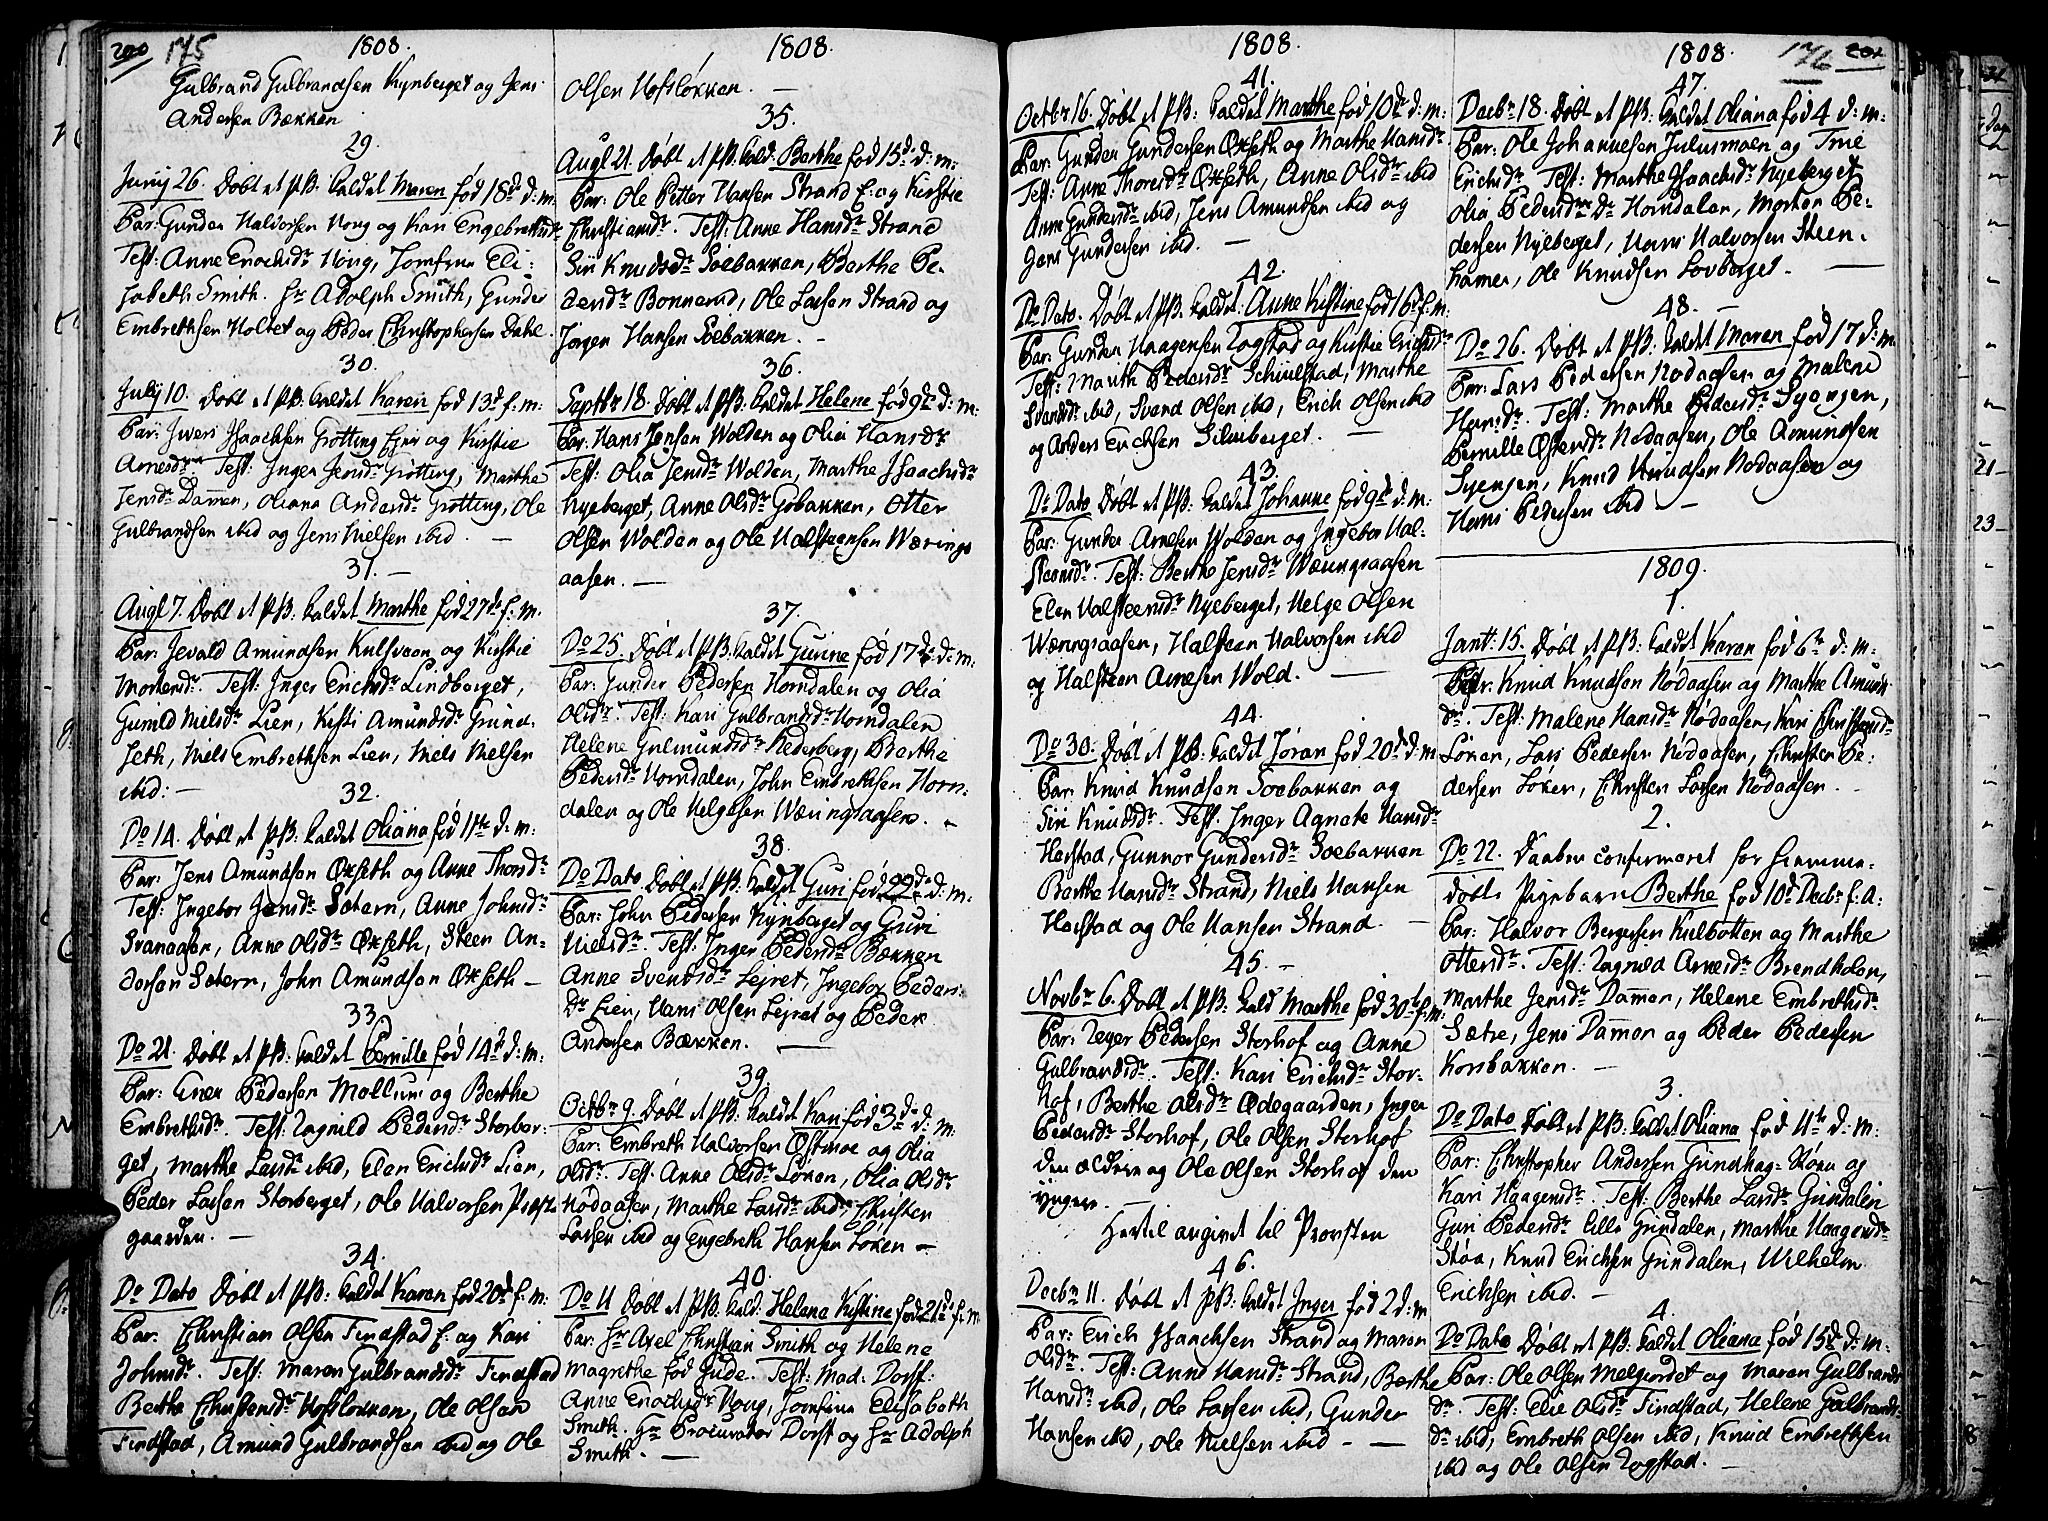 200 175
1808.
Gulbrand Gulbrandsen Kynberget og Jens
Andersen Bækken
29.
Junij 26. Døbt et PB: kaldet Maren fød 18de d: m:
Par: Gunder Halvorsen Houg og Kari Engebrethsdr
Test: Anne Enochsdr Houg, Jomfrue Eli-
sabeth Smith. Hr Adolph Smith, Gunder
Embrethsen Holtet og Peder Christophersen Dahl.
30.
July 10. Døbt et PB: kaldet Karen fød 13d f: m:
Par: Iver Isaachsen Grøtting Ejer og Kirstie
Arnesdr Test: Inger Jensdr Grøtting, Marthe
Jensdr Dammen, Oliana Andersdr Grøtting, Ole
Gulbrandsen ibid og Jens Nielsen ibid. —
31. —
Augl 7. Døbt et PB: kaldet Marthe fød 27de f: m.
Par: Jevald Amundsen Kulsveen og Kirstie
Mortensdr. Test: Inger Erichsdr Lindberget,
Gunild Nielsdr Lien, Kirsti Amundsdr Grind-
seth, Niels Embrethsen Lien, Niels Nielsen
ibid: —
32.
Do 14. Døbt et PB: kaldet Oliana fød 11te d: m:
Par: Jens Amundsen Øxseth og Anne Thorsdr
Test: Ingebor Jensdr Sætern, Anne Johnsdr
Svenaasen, Anne Olsdr Øxseth, Steen An-
dersen Sætern, John Amundsen Øxseth —
33.
Do 21. Døbt et PB: kaldet Pernille fød 14de d: m:
Par: Ener Pedersen Mellum og Berthe
Embrethsdr. Test: Ragnild Pedersdr Storber-
get, Marthe Larsdr ibid, Elen Erichsdr Lien,
Peder Larsen Storberget, Ole Halvorsen Præst-
gaarden. —
34.
Do Dato Døbt et PB: kaldet Karen fød 20de f: m:
Par: Christian Olsen Findstad E: og Kari
Johnsdr. Test: Maren Gulbrandsdr Findstad
Berthe Christensdr Hofsløkken, Ole Olsen
Findstad, Amund Gulbrandsen ibid og Ole
1808.
Olsen Hofsløkken. —
35.
Augl 21. Døbt et PB: kald: Berthe fød 15de d: m:
Par: Ole Petter Hansen Strand E: og Kirstie
Christiansdr. Test: Anne Hansdr Strand
Siri Knudsdr Soebakken, Berthe Pe-
dersdr Bonnerud, Ole Larsen Strand og
Jørgen Hansen Soebakken. —
36.
Septbr 18. Døbt et PB: kaldet Helene fød 9de d: m:
Par: Hans Jensen Wolden og Olia Hansdr
Test: Olia Jensdr Wolden, Marthe Isaachsdr
Nyeberget, Anne Olsdr Gobakken, Otter
Olsen Wolden og Ole Halsteensen Wærings
aasen. —
37.
Do 25. Døbt et PB: kaldet Gurine fød 17de d: m:
Par: Gunder Pedersen Horndalen og Olia
Olsdr. Test: Kari Gulbrandsdr Horndalen
Helene Gulmundsdr Rederberg, Berthe
Pedersdr Horndalen, John Embrethsen Horn-
dalen og Ole Helgesen Wæringsaasen. —
38.
Do Dato Døbt et PB: kaldet Guri fød 22de d: m.
Par: John Pedersen Kynberget og Guri
Nielsdr. Test: Inger Pedersdr Bækken
Anne Svendsdr Lejret, Ingebor Peders-
dr Lien, Hans Olsen Lejret og Peder
Andersen Bækken. —
39.
Octbr 9. Døbt et PB: kaldet Kari fød 3de d: m:
Par: Embreth Halvorsen Østmoe og Olia
Olsdr. Test: Anne Olsdr Løken, Olia Olsdr
Nødaasen, Marthe Larsdr ibid, Christen
Larsen ibid og Engebreth Hansen Løken —
40.
Do 11 Døbt et PB: kald: Helena Kistine fød 21de f: m.
Par: Hr Axel Christian Smith og Helene
Magrethe fød Gude. Test: Mad: Dorf:
Anne Enochsdr Houg, Jomfrue Elisabeth
Smith. Hr Procurator Dorff og Hr Adolph
Smith. —
1808.
41.
Octbr 16. Døbt et PB: kaldet Marthe fød 10de d: m:
Par: Gunder Gundersen Øxseth og Marthe Hansdr
Test: Anne Thoresdr Øxseth, Anne Olsdr ibid
Anne Gundersdr ibid, Jens Amundsen ibid og
Jens Gundersen ibid. —
42.
Do Dato. Døbt et PB: kaldet: Anne Kistine fød 16d f: m.
Par: Gunder Haagensen Rogstad og Kirstie Erichsdr
Test: Marith Pedersdr Schiulstad, Marthe
Svendsdr ibid, Svend Olsen ibid, Erich Olsen ibid
og Anders Erichsen Silwberget. —
43.
Do Dato Døbt et PB: kaldet Johanne fød 9de d: m:
Par: Gunder Arnesen Wolden og Ingebor Hal-
steensdr. Test: Berthe Jensdr Wæringsaasen
Elen Halsteensdr Nyeberget, Helge Olsen
Wæringsaasen, Halsteen Halvorsen ibid
og Halsteen Arnesen Wold. —
44.
Do 30. Døbt et PB: kaldet Jøran fød 20de d: m
Par: Knud Knudsen Soebakken og
Siri Knudsdr. Test. Inger Agnete Hansdr
Harstad, Gunnor Gundersdr Soebakken
Berthe Hansdr Strand, Niels Hansen
Harstad og Ole Hansen Strand. —
45. —
Novbr 6. Døbt et PB: kald Marthe fød 30te f: m:
Par: Reger Pedersen Storhof og Anne
Gulbrandsdr. Test: Kari Erichsdr Stor-
hof, Berthe Olsdr Ødegaarden, Inger
Pedersdr Storhof, Ole Olsen Storhof
den ældre og Ole Olsen Storhof den
yngere. —
Hertil angivet til Provsten
46.
Decbr 11. Døbt et PB: kaldet Inger fød 2 d: m
Par: Erich Isaachsen Strand og Maren
Olsdr. Test: Anne Hansdr Strand, Berthe
Hansdr ibid, Ole Larsen ibid, Gunder
Hansen ibid, Ole Nielsen ibid — —
1808. 176 201
47.
Decbr 18. Døbt et PB: kaldet Oliana fød 4 d: m:
Par: Ole Johannesen Julusmoen og Trie
Erichsdr Test: Marthe Isaachsdr Nyeberget
Olia Pedersdr Do Horndalen, Morten Pe-
dersen Nyeberget, Hans Halvorsen Steen-
hamer, Ole Knudsen Lovberget. —
48. —
Do 26. Døbt et PB: kaldet Maren fød 17 d: m
Par: Lars Pedersen Nødaasen og Malene
Hansdr. Test: Marthe Pedersdr Syersen,
Pernille Østensdr Nødaasen, Ole Amundsen
Syersen, Knud Knudsen Nødaasen og
Hans Pedersen ibid. —
1809.
1.
Jantr: 15. Døbt et PB: kaldet Karen fød 6te d: m:
Par: Knud Knudsen Nødaasen og Marthe Amunds
dr. Test: Malene Hansdr Nødaasen, Kari Christensdr
Løken, Lars Pedersen Nødaasen, Christen Pe-
dersen Løken, Christen Larsen Nødaasen. —
2.
Do 22. Daaben confirmeret for hiemme-
døbte Pigebarn Berthe fød 10de Decbr f: A:
Par: Halvor Bergersen Kulbotten og Marthe
Ottersdr. Test: Ragnild Arnesdr Brendholen,
Marthe Jensdr Dammen, Helene Embrethsdr
Sætre, Jens Dammen og Peder Pedersen
Korsbakken. —
3.
Do Dato Døbt et PB: kaldet Oliana fød 11te d: m:
Par: Christopher Andersen Gundhag-Støen og
Kari Haagensdr. Test: Berthe Larsdr Grindalen
Guri Pedersdr Lille Grindalen, Marthe Haagensdr
Støa, Knud Erichsen Grindalen, Wilhelm
Erichsen ibid. —
4.
Do Dato Døbt et PB: kaldet Oliana fød 15de d: m:
Par: Ole Olsen Melgordet og Maren Gulbrands
dr. Test: Elie Olsdr Findstad, Helene Gulbrands-
dr ibid, Embreth Olsen ibid, Knud Embrethsen
ibid og Ole Olsen Rogstad. —
21-
23-